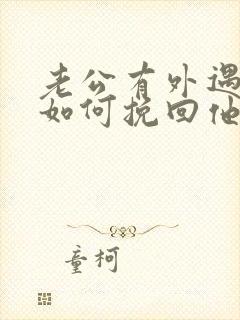 老公有外遇
如何挽回他
童柯